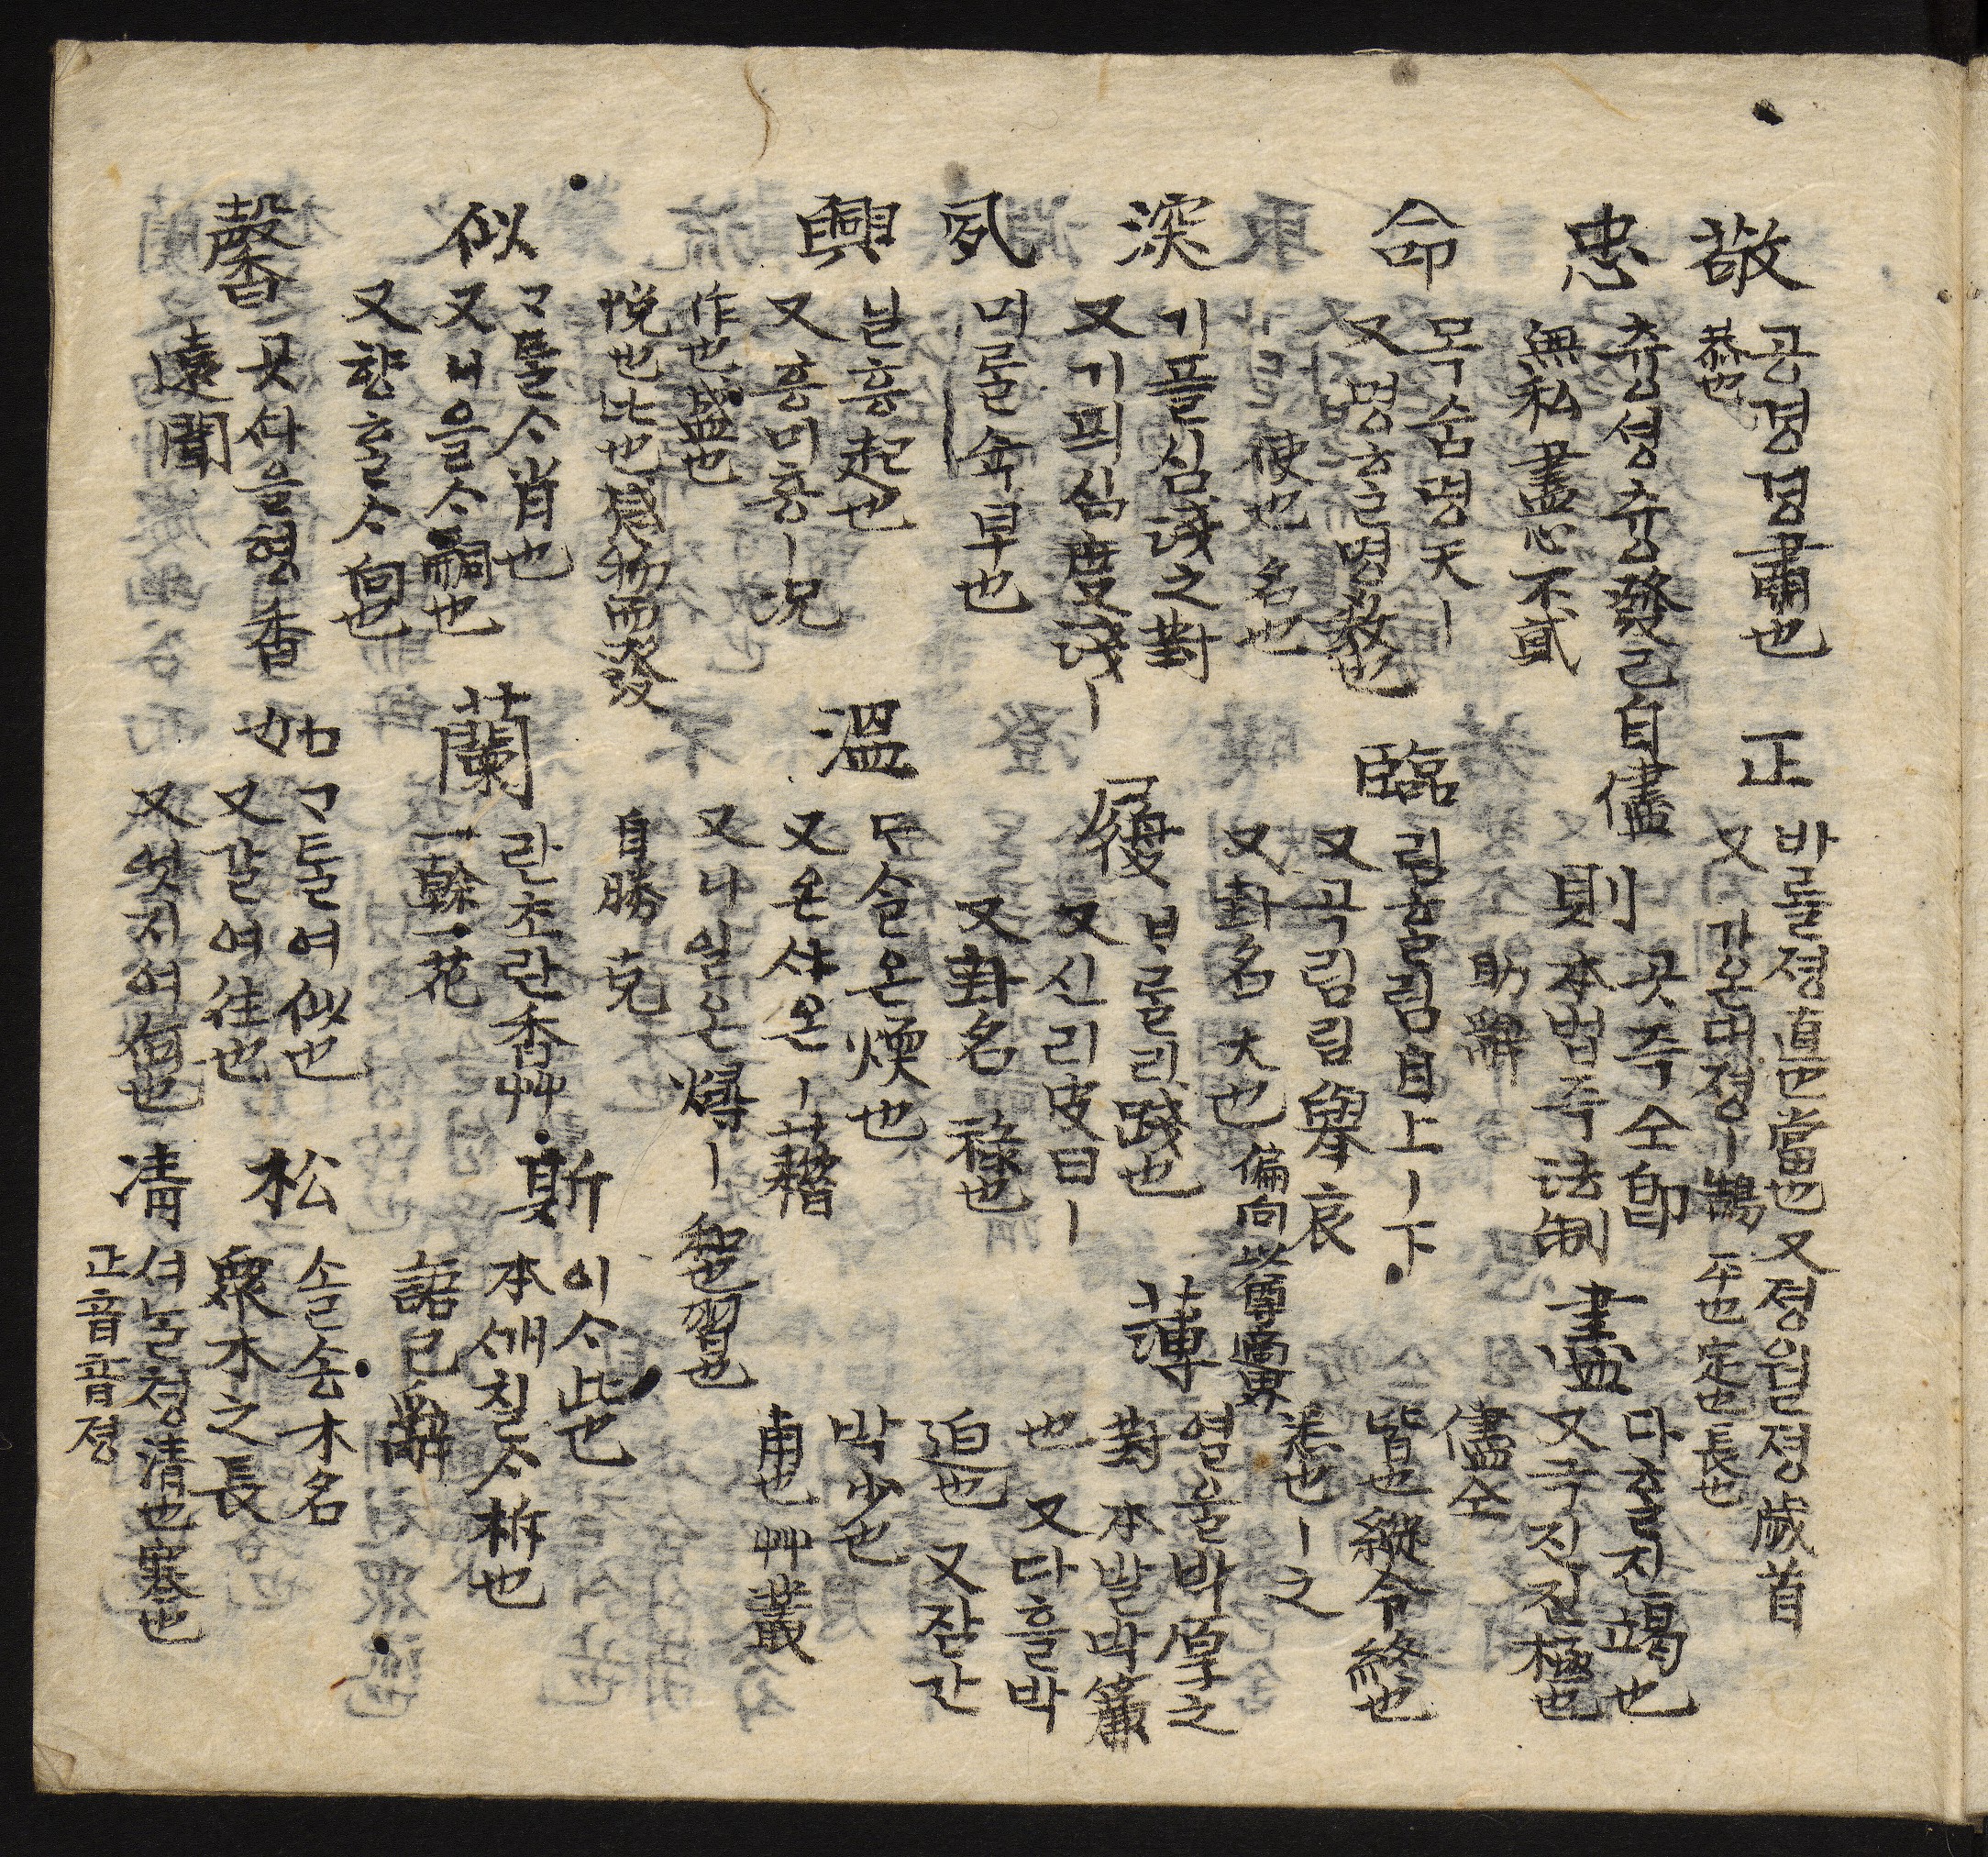 敬 공경경 肅也
恭也
正 바롤졍 直也當也 又졍월졍 歲首
又 관올며졍 ㅣ鵠 平也定也長也
忠 츙셩츙 發己自儘
無私 盡心不貳
則 곳즉 仝卽
本법즉 法制
助辭
盡 다흘진 竭也
又극진진 極也
儘仝
皆也 縱令 終也
悉也 ㅣ之
命 목숨명 天ㅣ
又명흘명 敎也
使也 名也
臨 림흘림 自上ㅣ下
又곡림림 擧哀
又卦名 大也 偏向 以尊適卑
深 기플심 淺之對
又기픠심 度淺ㅣ
履 볼롤리 踐也
又신리 皮曰ㅣ
又卦名 祿也
薄 열울박 厚之
對 本발박 簾
也 又다흘박
迫也 又잠간
박 少也
甫也 艸叢
夙 미롤슉 早也
興 닐흥 起也
又흥미흥 ㅣ况
作也盛也
悅也比也感物而發
溫 ᄃᆞ슬온 煖也
又온샤온 ㅣ藉
又니일온 燖ㅣ 和也習也
自勝克
似 ᄀᆞᄐᆞᆯᄉᆞ 肖也
又니을ᄉᆞ 嗣也
又향ᄒᆞᆯᄉᆞ 向也
蘭 란초란 香艸
一幹一花
斯 이ᄉᆞ 此也
本ᄣᅢ칠ᄉᆞ 析也
語已辭
馨 곳ᄯᅡ을형 香
遠聞
如 ᄀᆞᄐᆞᆯ여 似也
又갈여 往也
又엇지여 何也
松 솔숑 木名
衆木之長
凊 셔늘졍 清也寒也
正音音졍